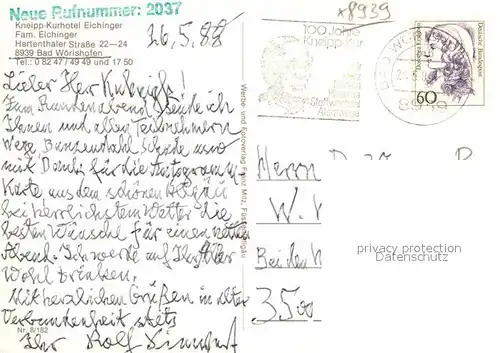 Neue Rufnummer: 2037
Kneipp-Kurhotel Eichinger
Fam. Eichinger
Hartenthaler Straße 22–24
8939 Bad Wörishofen
Tel.: 0 82 47 / 49 49 und 17 50
26.5.88
Lieber Herr
Zum Rundenabend sende ich
Ihnen und allen Teilnehmern
mit Dank für die Autogramm
Karte aus dem schönen Allgäu
bei herrlichstem Wetter die
besten Wünsche für einen netten
Abend. Ich werde auf Ihr aller
Wohl trinken.
Mit herzlichen Grüßen in alter
Verbundenheit stets
Ihr Rolf
Nr. 8/182
Werbe- und Fotoverlag Franz Milz, Füssen/Allgäu
*8939
100 Jahre
Kneipp-Kur
BAD WÖRISHOFEN
8939
Deutsche Bundespost
60
Herrn
W.
Bei den
3500
privacy protection
Datenschutz